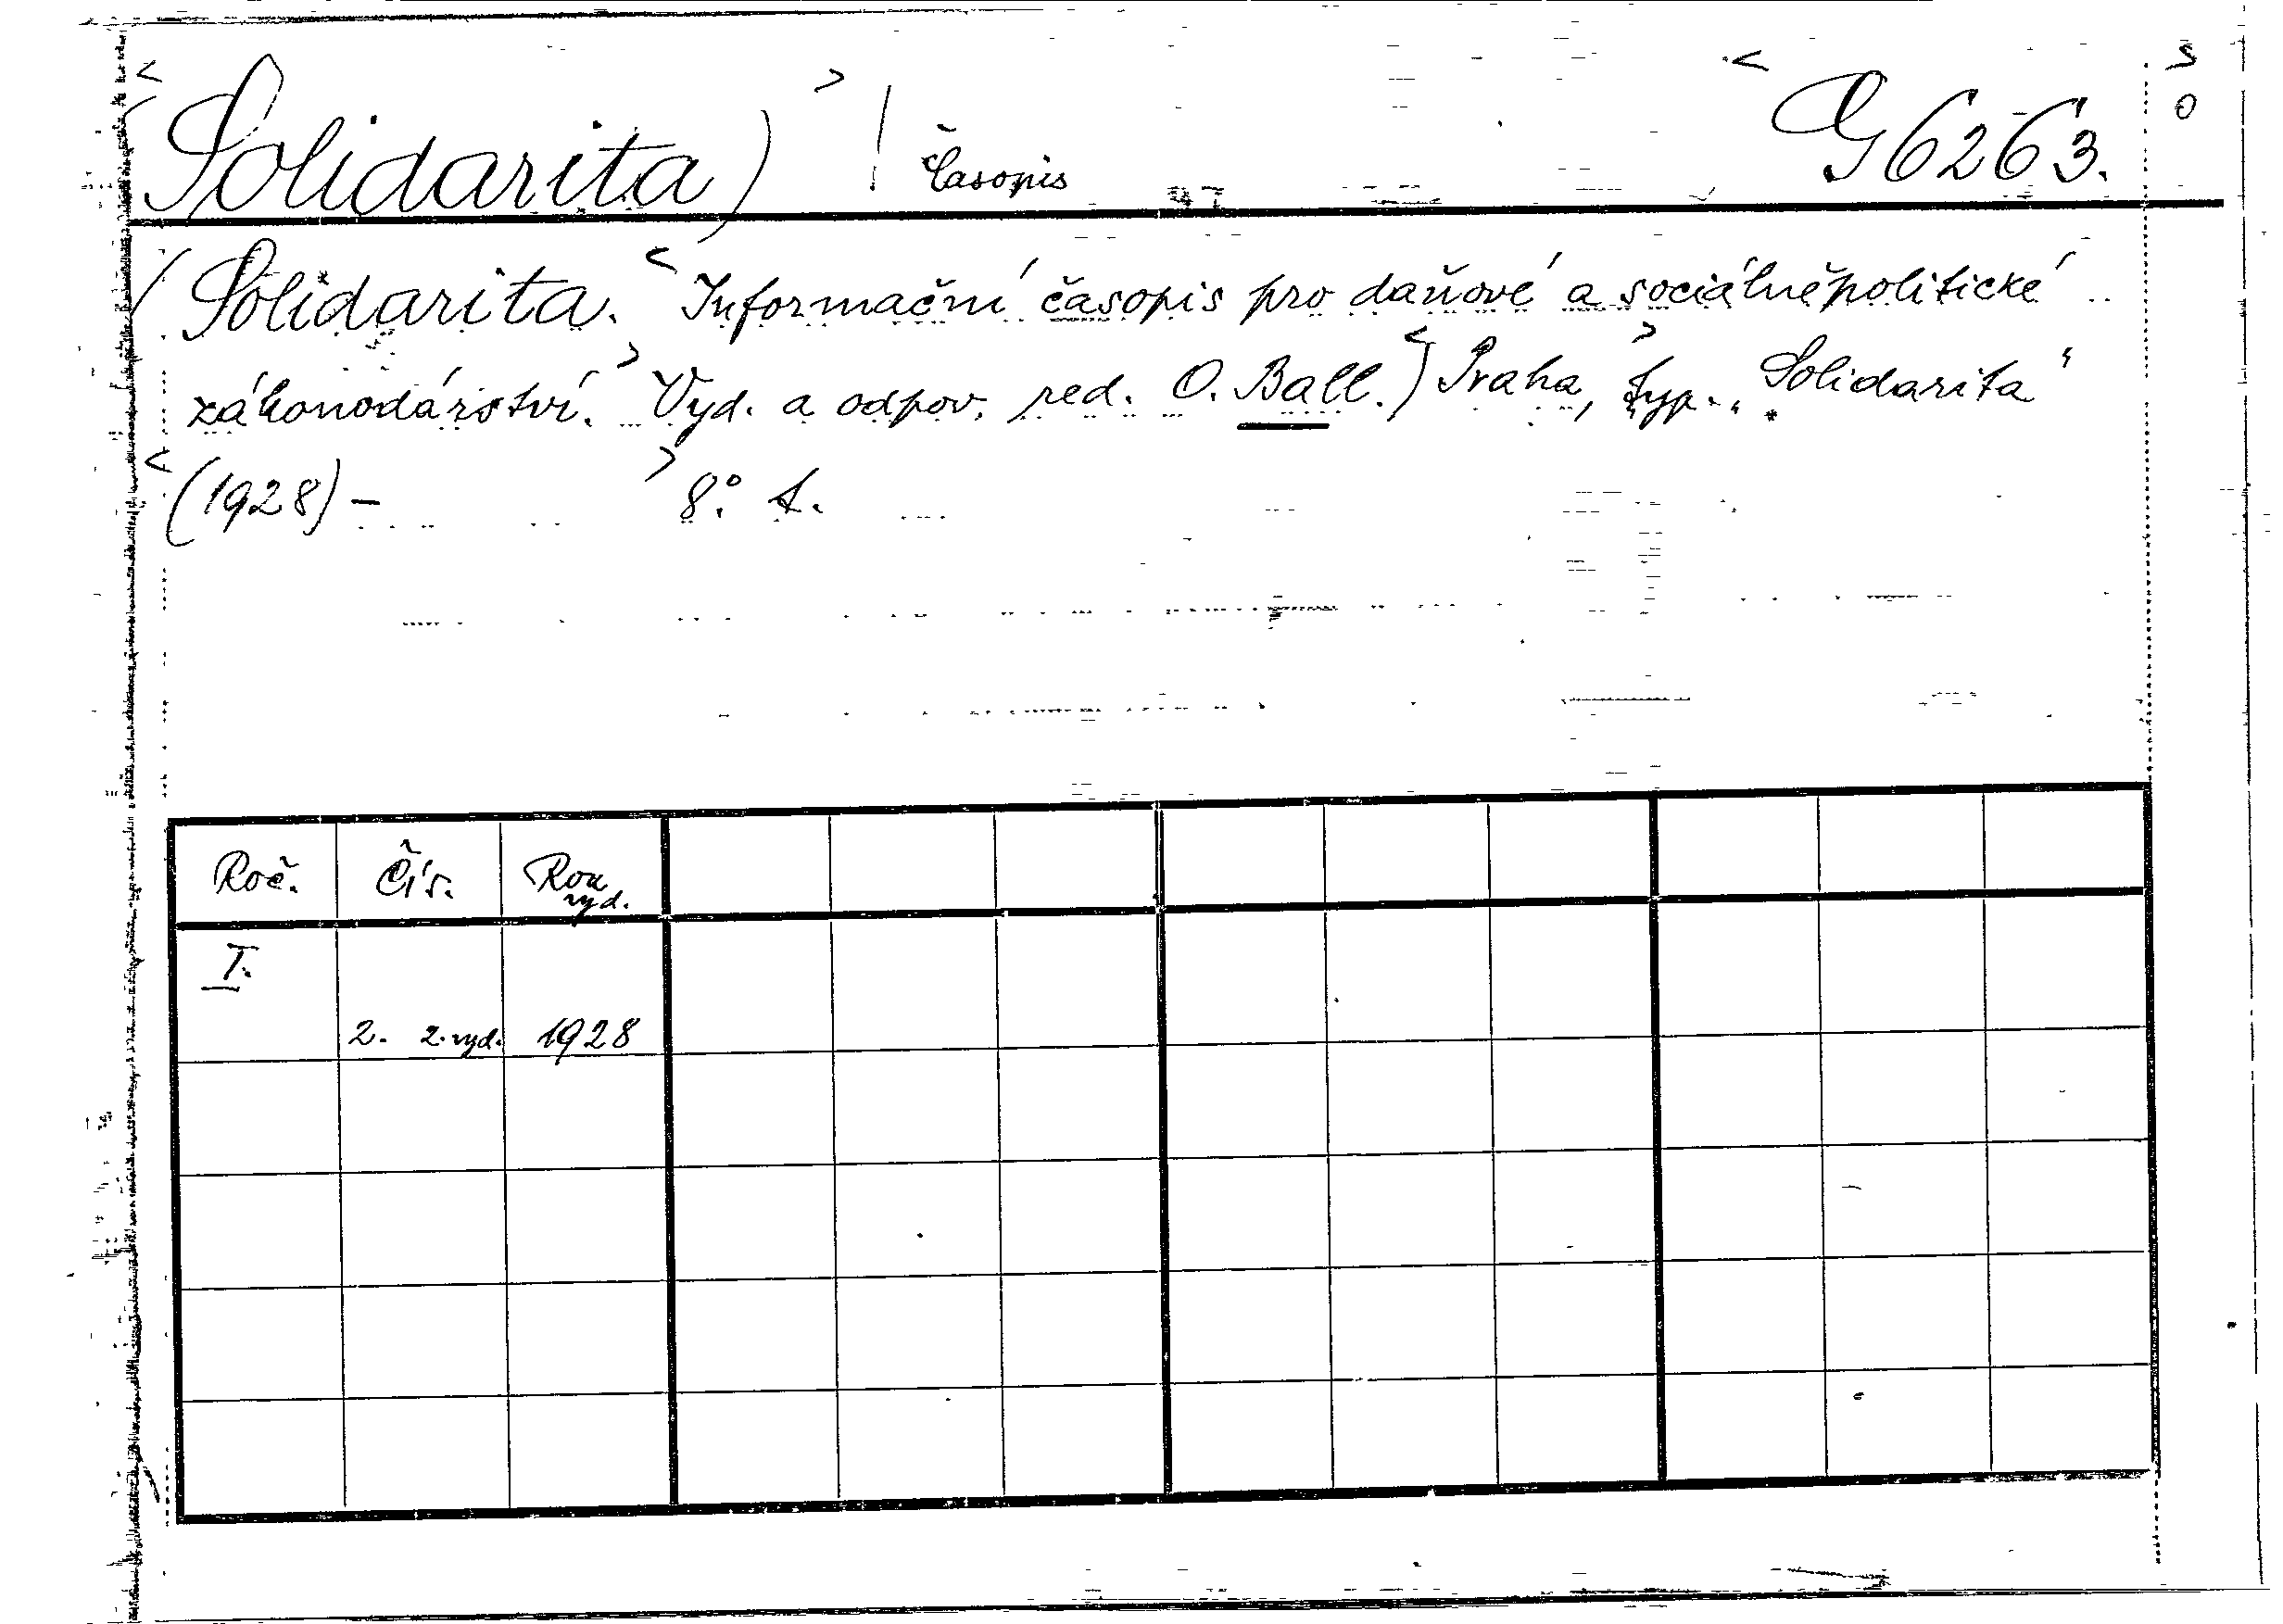 <Solidarita> / časopis < G 6263. S
O
(Solidarita. < Informační časopis pro daňové a sociálněpolitické
zákonodárství. > Vyd. a odpov. red. O. Ball.) < Praha, > typ. „Solidarita"
< (1928) – > 8°. t.
Roč. Čís. Rok
vyd.
I.
2. 2. vyd. 1928